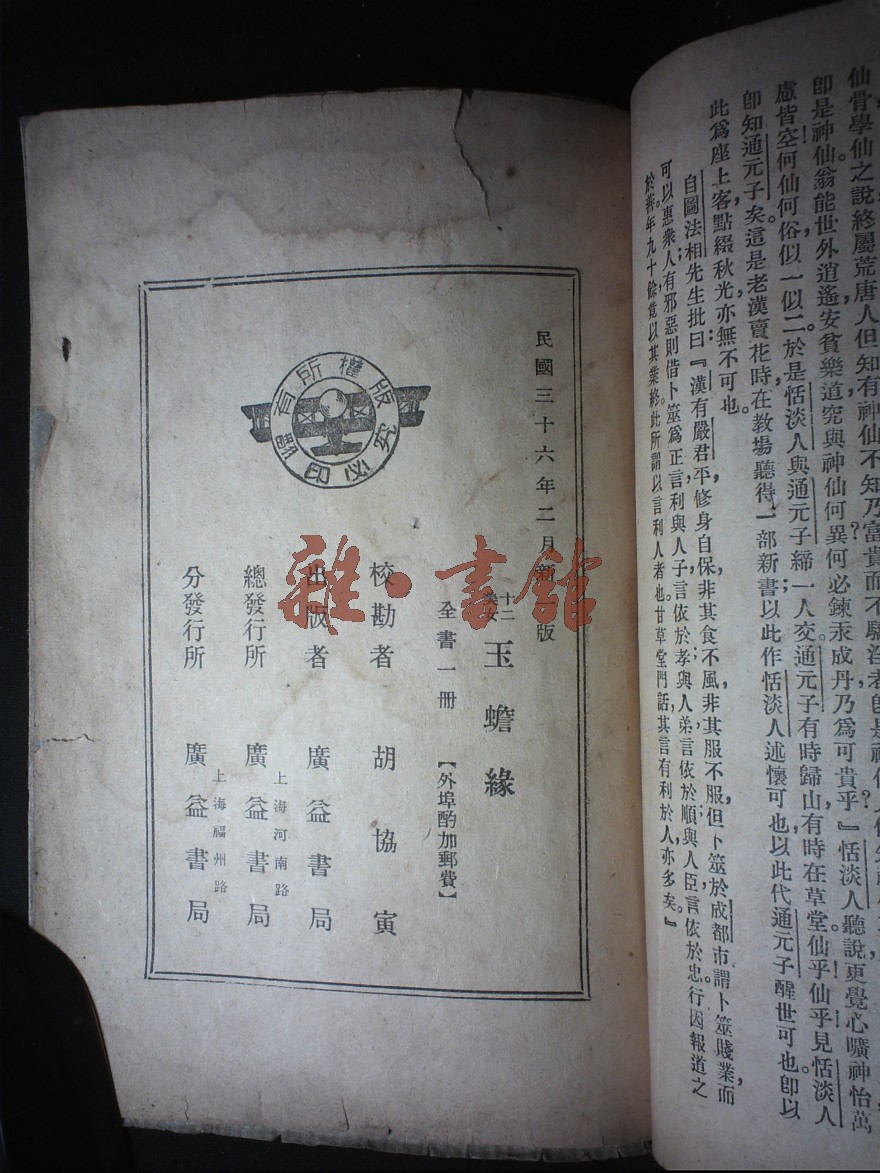 仙骨學仙之說終屬荒唐人但知有神仙不知乃富貴而不驕淫者卽是神仙
卽是神仙翁能世外逍遙安貧樂道究與神仙何異何必鍊汞成丹乃爲可貴乎?』恬淡人聽說更覺心曠神怡萬
慮皆空何仙何俗似一似二於是恬淡人與通元子締一人交通元子有時歸山有時在草堂仙乎仙乎見恬淡人
卽知通元子矣。這是老漢賣花時在教場聽得一部新書以此作恬淡人述懷可也以此代通元子醒世可也。卽以
此爲座上客點綴秋光亦無不可也。
自圖法相先生批曰:『漢有嚴君平,修身自保,非其食不風,非其服不服,但卜筮於成都市,謂卜筮賤業,而
可以惠衆人有邪惡則借卜筮爲正言利與人子言依於孝與人弟言依於順與人臣言依於忠。行因報道之
於善。年九十餘,竟以其業終。此所謂以言利人者也。甘草堂門話其言有利於人,亦多矣。』
民國三十六年二月新版
十二
美女
玉蟾緣
全書一冊
【外埠酌加郵費】
校勘者 胡協寅
出版者 廣益書局
上海河南路
總發行所 廣益書局
上海福州路
分發行所 廣益書局
版權所有
翻印必究
雜·書館